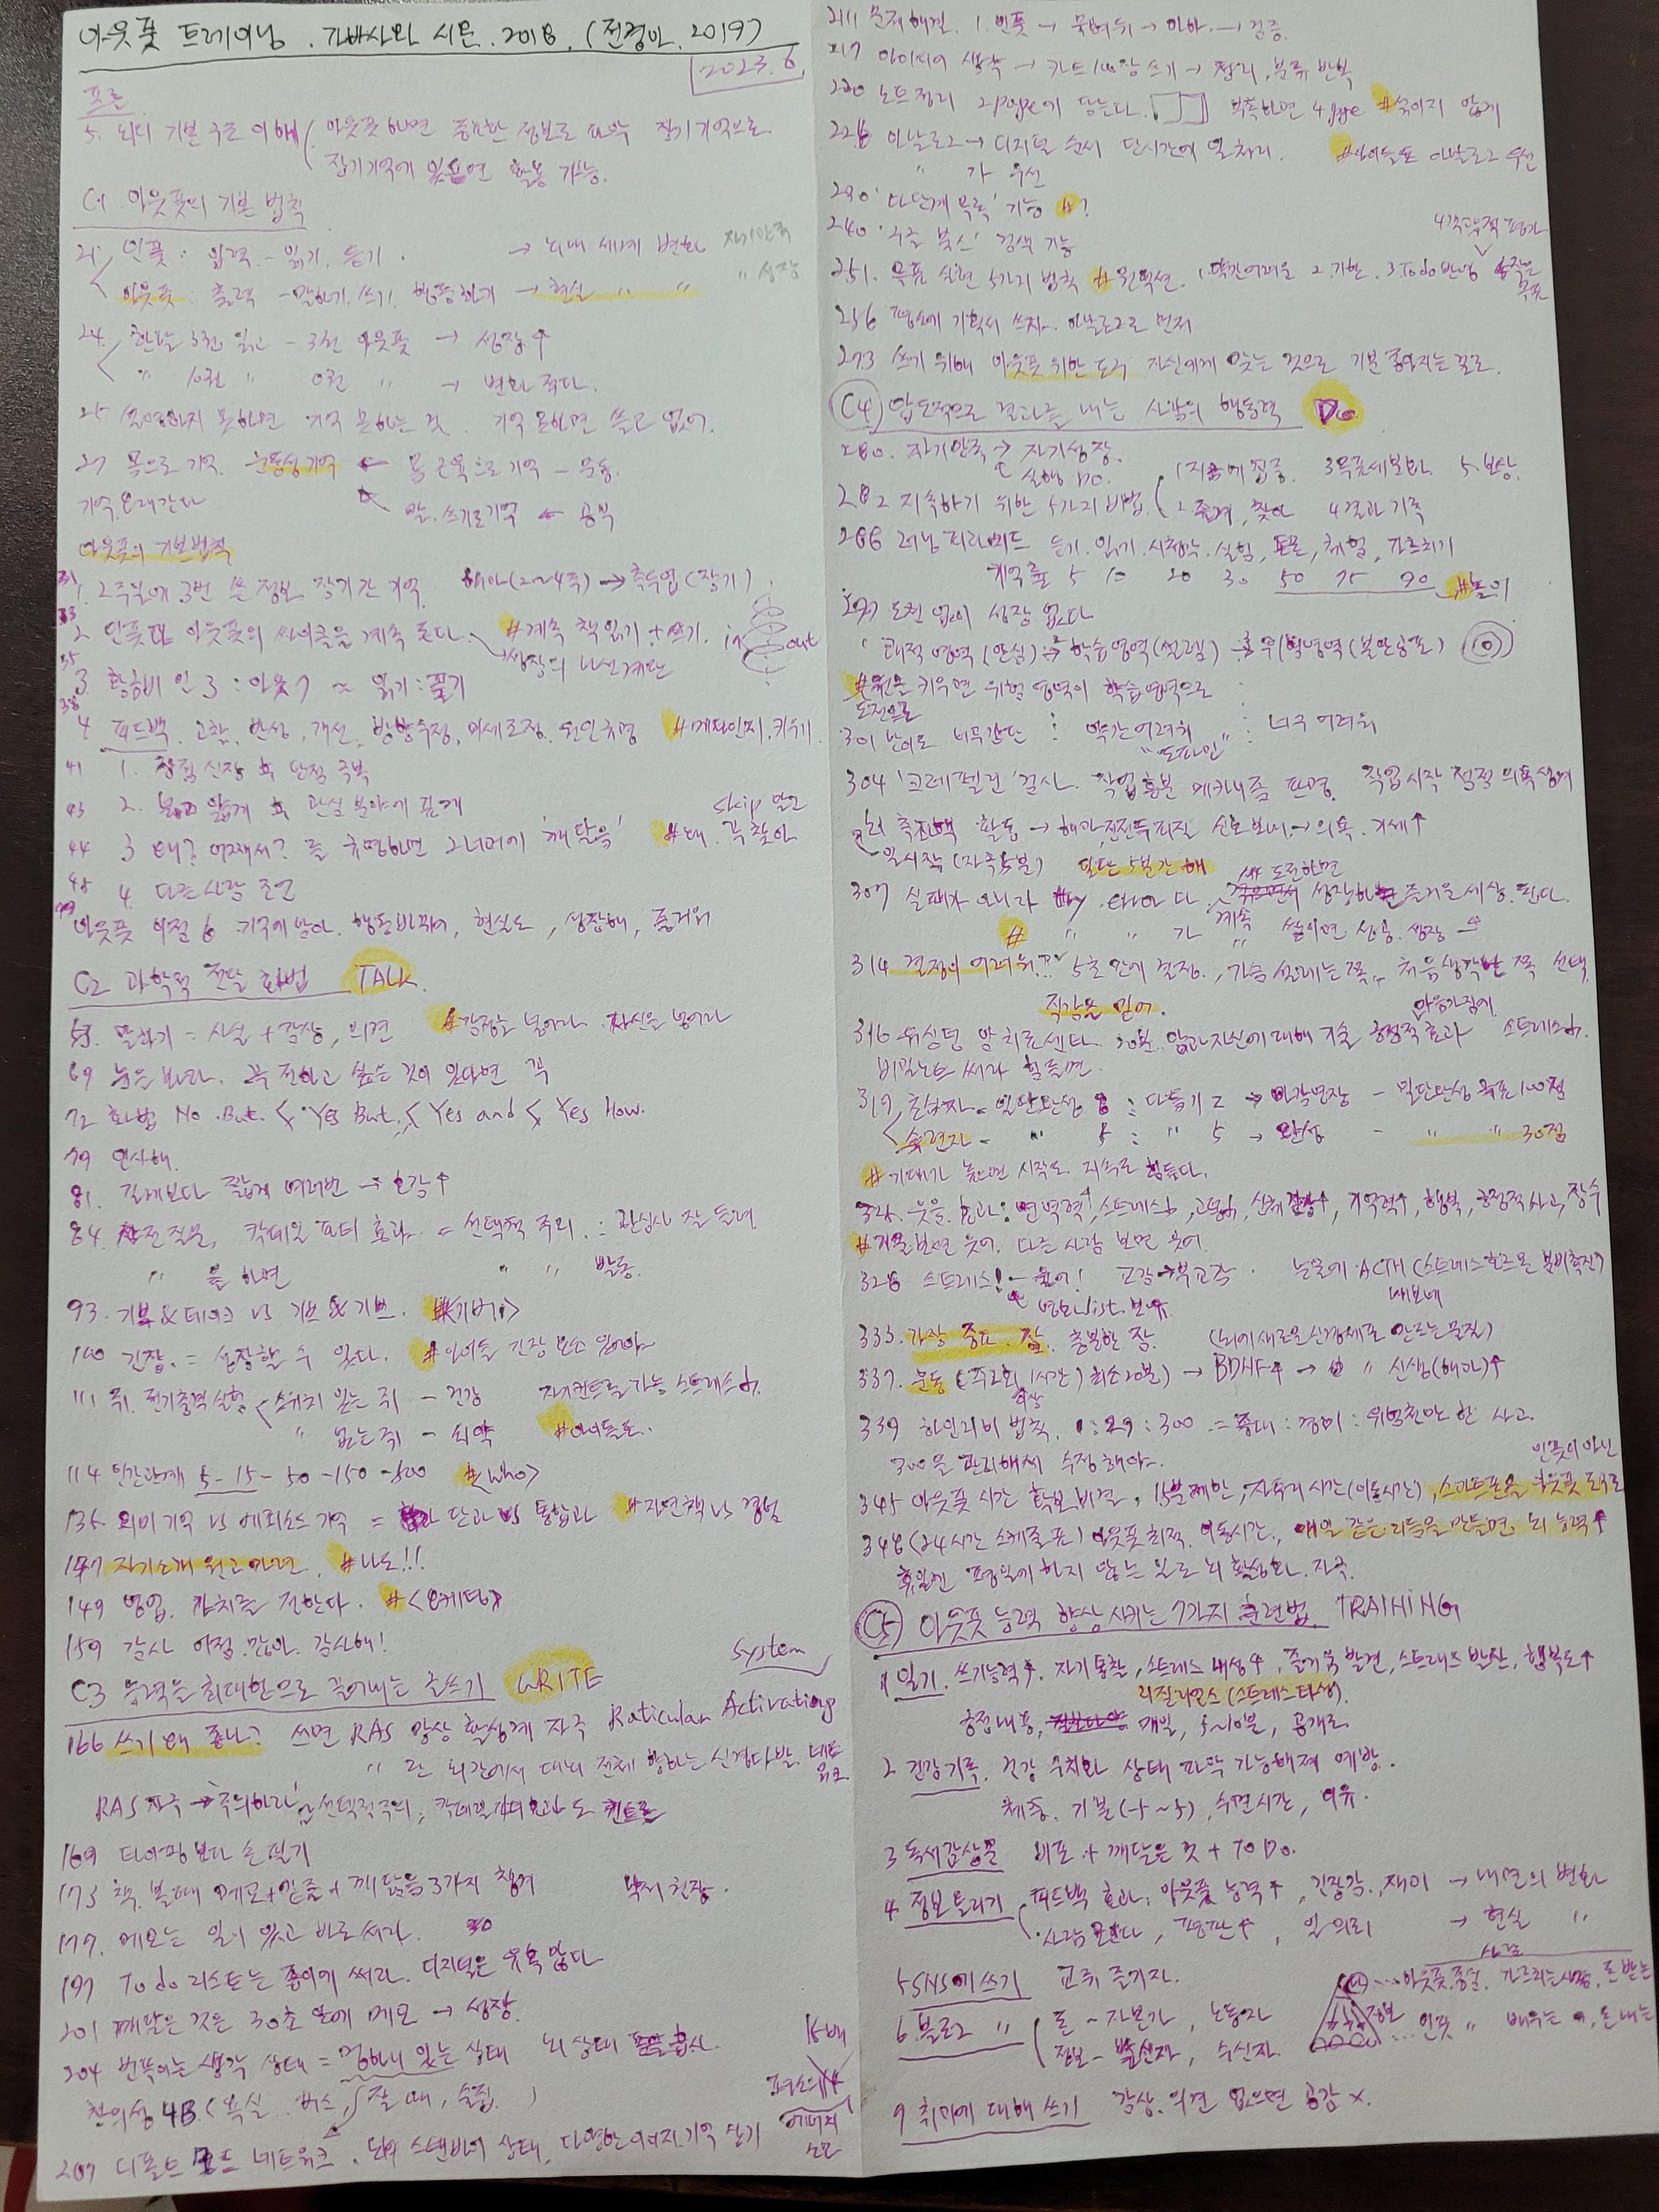 아웃풋 트레이닝. 가바사와 시온. 2018. (전경아. 2019)
2023.6
프롤
5. 뇌의 기본 구조 이해 아웃풋하면 중요한 정보로 파악 장기기억으로
장기기억에 있으면 활용 가능.
C1. 아웃풋의 기본 법칙
21 인풋: 입력 - 읽기, 듣기. → 뇌내 세계 변화 자기만족
아웃풋: 출력 - 말하기, 쓰기, 행동하기 → 현실 " " " 성장
24. 한달 3권 읽고 - 3권 아웃풋 → 성장↑
" 10권 " 0권 " → 변화 적다.
25 설명하지 못하면 기억 못하는 것. 기억 못하면 쓸모 없어.
27 몸으로 기억. 운동성기억 ← 몸 근육으로 기억 - 운동.
기억오래간다 말. 쓰기로기억 ← 공부
아웃풋의 기본법칙
31 1. 2주일에 3번 쓴 정보 장기간 기억. 해마(2~4주) → 측두엽(장기)
33 2 인풋과 아웃풋의 싸이클을 계속 돈다. #계속 책읽기 + 쓰기. in out
성장의 나선계단
35 3. 황금비 인3 : 아웃7 ≈ 읽기 : 쓰기
38 4 피드백. 고찰, 반성, 개선, 방향수정, 미세조정, 원인규명 #메타인지.키우기
41 1. 장점 신장 & 단점 극복
43 2. 넓고 얇게 & 관심 분야에 깊게
44 3 왜? 어째서? 를 규명하면 그너머에 '깨달음' #왜. 꼭 찾아 skip 말고
48 4 다른사람 조언
49 아웃풋 이점 6 기억에 남아. 행동바뀌어, 현실도, 성장해, 즐거워
C2 과학적 전달 화법 TALK
말하기 = 사실 + 감상, 의견 #감정을 넣어라. 자신을 넣어라
69 눈을 봐라. 꼭 전하고 싶은 것이 있다면 꼭
72 화법 No But. < Yes But, < Yes and < Yes How.
79 인사해.
81. 길게보다 짧게 여러번 → 호감↑
84. 사전질문, 칵테일 파티 효과. = 선택적 주의 : 관심사 잘 들려.
" 을 하면 " " 발동.
93. 기브&테이크 vs 기브&기브. #<기버>
100 긴장. = 성장할 수 있다. #아이들 긴장
111 쥐. 전기충격실험 스위치 있는 쥐 - 건강 자기컨트롤가능 스트레스↓.
" 없는쥐 - 쇠약 #아이들도..
114 인간관계 5-15-50-150-500 #<who>
135. 의미기억 vs 에피소드 기억 = 단과 vs 통합과 #자연책 vs 경험
147 자기소개 원고마련. #나도!!
149 영업. 가치를 전한다. #<오케터>
159 감사 이점.많아. 감사해!
C3 능력을 최대한으로 끌어내는 글쓰기 WRITE
166 쓰기 왜 좋나? 쓰면 RAS 망상 활성계 자극 Raticular Activating System
" 란 뇌간에서 대뇌 전체 향하는 신경다발. 네트워크
RAS 자극 → 주의하라! 선택적주의, 칵테일파티효과도 컨트롤
169 타이핑보다 손필기
175 책. 볼때 메모+밑줄+깨달음3가지 챙겨 낙서 권장.
177. 메모는 일이 있고 바로써라.
197 To do 리스트는 종이에 써라. 디지털은 유혹 많다
201 깨달은 것은 30초 안에 메모 → 성장.
204 번뜩이는 생각 상태 = 멍하니 있는 상태 뇌 상태
창의성 4B (욕실, 버스, 잘 때, 술집.)
207 디폴트 모드 네트워크. 뇌의 스탠바이 상태. 다양한 이미지.기억 상기 평소의 15배 에너지 소모
211 문제해결. 1. 인풋 → 묵혀두기 → 아하 → 검증.
217 아이디어 생각 → 카드100장 쓰기 → 정리, 분류 반복
220 노트정리 2page에 담는다. 부족하면 4page #섞이지 않게
226 아날로그 → 디지털 순서 단시간에 일처리. #아이들도 아날로그 우선
" 가 우선
230 '다단계 목록' 기능 #?
240 '구글 북스' 검색 기능
251. 목표 실현 5가지 법칙 #원씽션. 1.약간어려운 2.기한. 3.To do 반영 4객관적 평가 5작은 목표
256 평소에 기획서 쓰자. 아날로그로 먼저
273 쓰기 위해 아웃풋 위한 도구 자신에게 맞는 것으로 기분 좋아지는 걸로.
C4 압도적으로 결과를 내는 사람의 행동력 Do
280. 자기만족 → 자기성장.
실행 Do.
282 지속하기 위한 5가지비법. 1지금에 집중 2.즐겨, 찾아 3목표세분화 4결과기록 5.보상.
288 러닝 피라미드 듣기. 읽기, 시청각, 실험, 토론, 체험, 가르치기
기억율 5 10 20 30 50 75 90 #놀이
297 도전 없이 성장 없다
쾌적 영역(안심) → 학습영역(설렘) → 위험영역(불안공포)
#원을 키우면 위험 영역이 학습영역으로
도전으로
301 난이도 너무간단 : 약간어려워 : 너무 어려워
"도파민"
304 '크레펠린' 검사. 작업흥분 메카니즘 판명. 작업시작 점점 의욕생겨
뇌 측좌핵 활동 → 해마,전전두피질 신호보내 → 의욕, 기세↑
일시작(자극5분) 일단 5분간 해
307 실패가 아니라 try. error 다. 도전하면 성장하는 즐거운 세상 된다.
# " " 가 계속 쌓이면 성공. 성장
314 결정이 어려워? 5초 안에 결정., 가슴 설레는쪽, 처음생각난 쪽 선택
직감을 믿어. 마음가짐에
316 워싱턴 암치료센터. 20분. 암과자신에대해 기술 긍정적효과 스트레스↓.
비밀노트 써라 힘들면.
319, 초심자 = 일단완성 8 : 다듬기 2 → 마감연장 - 일단완성 목표100점
숙련자 - " 5 : " 5 → 완성 - " " 30점
#기대가 높으면 시작도. 지속도 힘들다.
326. 웃음. 효과: 면역력↑, 스트레스↓, 고통↓, 신체 건강↑, 기억력↑, 행복, 긍정적사고, 장수
#거울보면 웃어. 다른 사람 보면 웃어.
328 스트레스! - 울어! 교감→부교감. 눈물에 ACTH (스트레스호르몬 분비촉진)
영화List. 보유 내보내
333. 가장 중요. 잠. 충분한 잠. (뇌에새로운신경세포 만드는물질)
337. 운동 (주2회, 1시간 이상) 최소20분) → BDNF↑ → 뇌 " 신생(해마)↑
339 하인리히 법칙. 1:29:300 = 중대:경미:위험천만 한 사고.
300을 관리해서 수정해야.
345 아웃풋 시간 확보비결. 15분제한, 자투리 시간(이동시간), 스마트폰을 인풋이 아닌 아웃풋 도구로
348 (24시간 스케줄 표) 아웃풋최적 이동시간., 매일 같은 리듬을 만들면. 뇌 능력↑
휴일엔 평일에 하지 않는 일로 뇌 활성화. 자극.
C5 아웃풋 능력 향상시키는 7가지 훈련법. TRAINING
1 일기. 쓰기능력↑. 자기통찰, 스트레스 내성↑, 즐거움 발견, 스트레스 발산, 행복도↑
리질리언스(스트레스내성).
긍정내용, 매일, 5~10분, 공개로
2. 건강기록. 건강 수치와 상태 파악 가능해져 예방.
체중. 기분(-5~5), 수면시간, 이유.
3 독서감상문 비포 + 깨달은 것 + TO DO.
4 정보 올리기 피드백 효과, 아웃풋 능력↑, 긴장감, 재미 → 내면의 변화
사람 모인다, 평판↑, 일 의뢰 → 현실 "
5 SNS에쓰기 교류 즐기자.
6. 블로그 " 돈 ~ 자본가, 노동자
정보 - 발신자, 수신자.
아웃풋.중심. 가르치는사람, 돈 받는
인풋 " 배우는 ", 돈 내는
7 취미에 대해 쓰기 감상. 의견 없으면 공감 x.